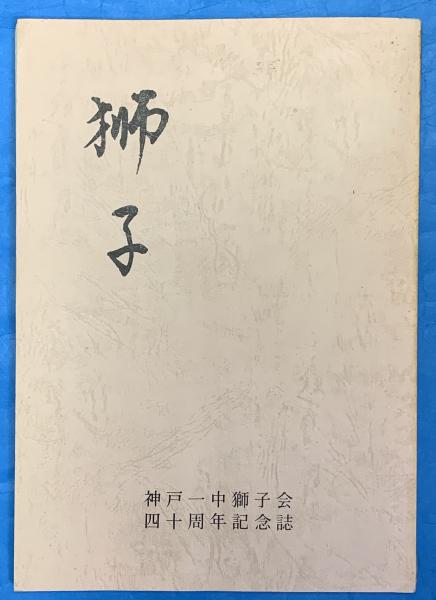 獅子
神戸一中獅子会
四十周年記念誌